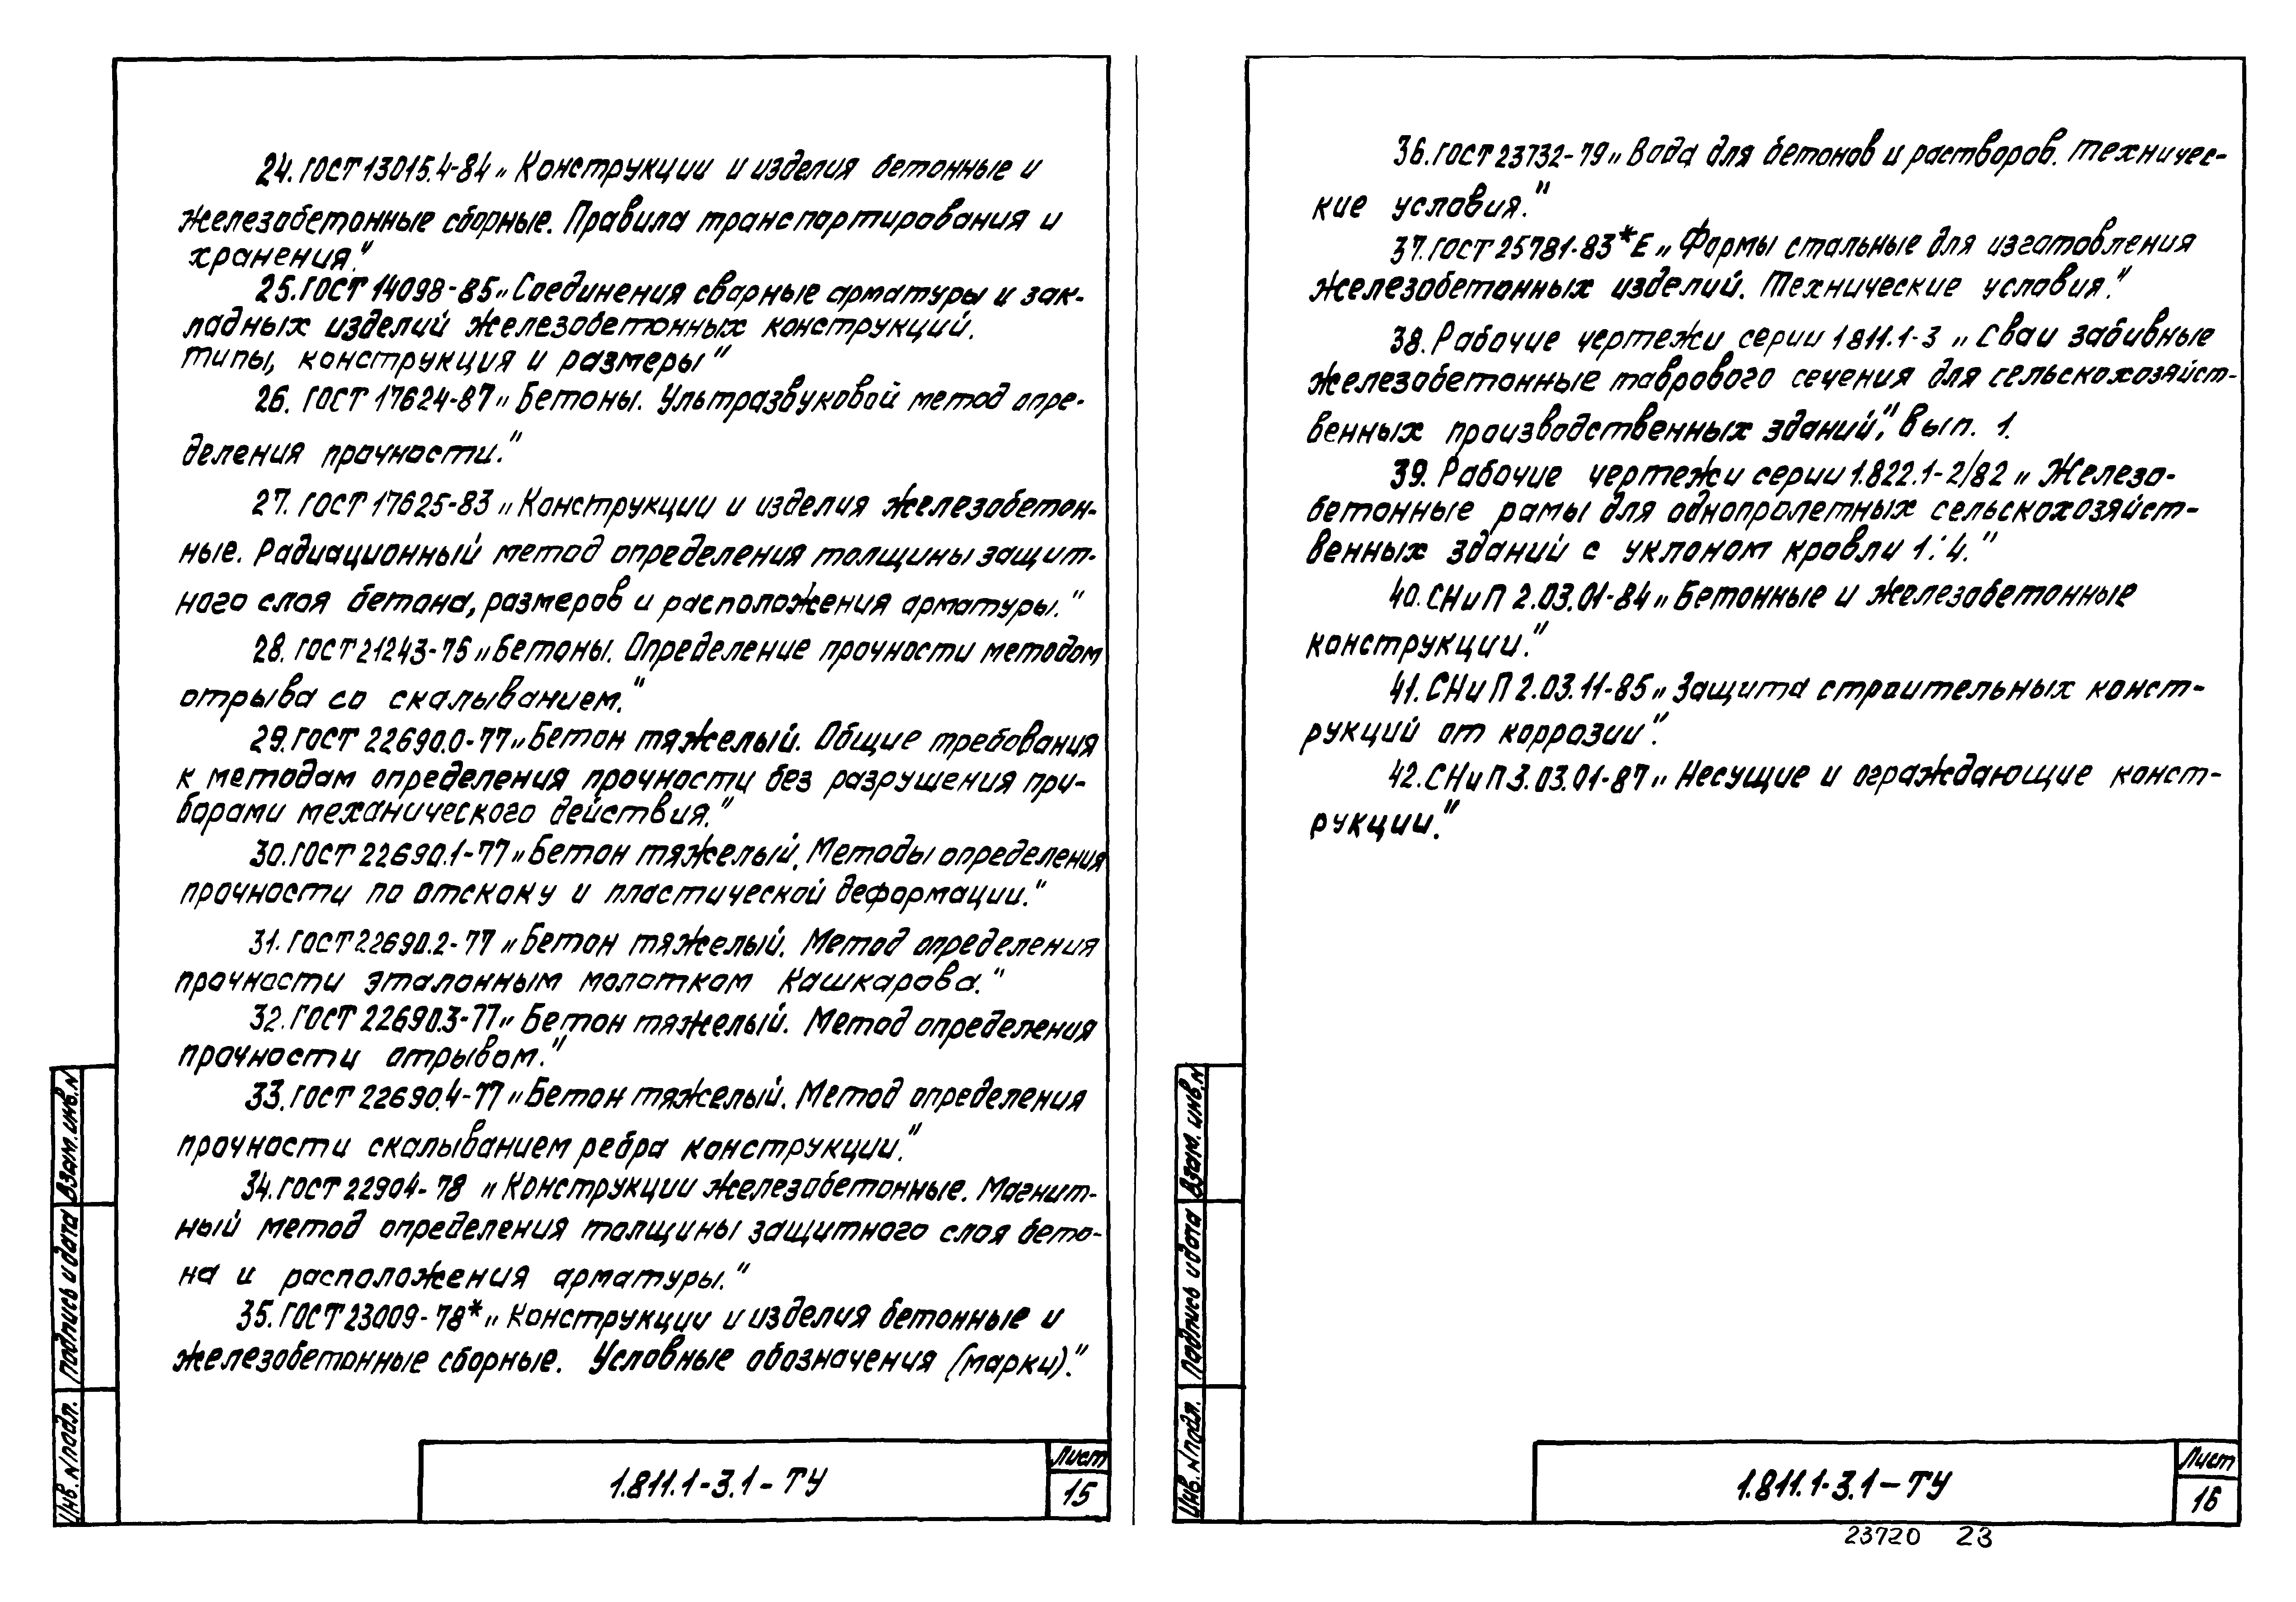 24. ГОСТ 13015.4-84 „Конструкции и изделия бетонные и
железобетонные сборные. Правила транспартирования и
хранения."
25. ГОСТ 14098-85 „Соединения сварные арматуры и зак-
ладных изделий железобетонных конструкций.
типы, конструкция и размеры"
26. ГОСТ 17624-87 „Бетоны. Ультразвуковой метод опре-
деления прочности."
27. ГОСТ 17625-83 „Конструкции и изделия железобетон-
ные. Радиационный метод определения толщины защит-
ного слоя бетона, размеров и расположения арматуры."
28. ГОСТ 21243-75 „Бетоны. Определение прочности методом
отрыва со скалыванием."
29. ГОСТ 22690.0-77 „Бетон тяжелый. Общие требования
к методам определения прочности без разрушения при-
борами механического действия."
30. ГОСТ 22690.1-77 „Бетон тяжелый. Методы определения
прочности по отскоку и пластической деформации."
31. ГОСТ 22690.2-77 „Бетон тяжелый. Метод определения
прочности эталонным молотком Кашкарова."
32. ГОСТ 22690.3-77 „Бетон тяжелый. Метод определения
прочности отрывом."
33. ГОСТ 22690.4-77 „Бетон тяжелый. Метод определения
прочности скалыванием ребра конструкции."
34. ГОСТ 22904-78 „Конструкции железобетонные. Магнит-
ный метод определения толщины защитного слоя бето-
на и расположения арматуры."
35. ГОСТ 23009-78* „Конструкции и изделия бетонные и
железобетонные сборные. Условные обозначения (марки)."
Взам. инв. N
Подпись и дата
Инв. N подл.
1.811.1-3.1-ТУ
Лист
15
36. ГОСТ 23732-79 „Вода для бетонов и растворов. Техничес-
кие условия."
37. ГОСТ 25781-83*Е „Формы стальные для изготовления
железобетонных изделий. Технические условия."
38. Рабочие чертежи серии 1811.1-3 „Сваи забивные
железобетонные таврового сечения для сельскохозяйст-
венных производственных зданий", вып. 1.
39. Рабочие чертежи серии 1.822.1-2/82 „Железо-
бетонные рамы для однопролетных сельскохозяйст-
венных зданий с уклоном кровли 1:4."
40. СНиП 2.03.01-84 „Бетонные и железобетонные
конструкции."
41. СНиП 2.03.11-85 „Защита строительных конст-
рукций от коррозии".
42. СНиП 3.03.01-87 „Несущие и ограждающие конст-
рукции."
Взам. инв. N
Подпись и дата
Инв. N подл.
1.811.1-3.1-ТУ
Лист
16
23720 23